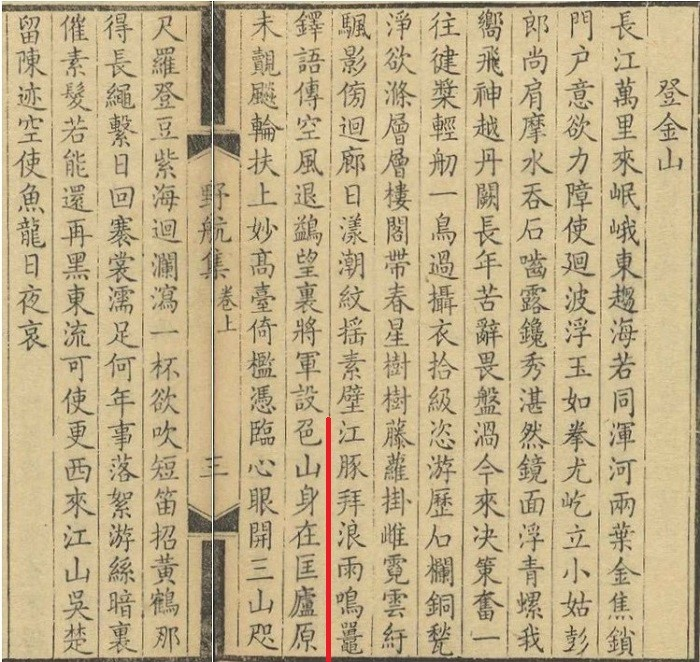 登金山
長江萬里來岷峨東趨海若同渾河兩葉金焦鎖
門户意欲力障使廻波浮玉如拳尤屹立小姑彭
郎尚肩摩水吞石嚙露鑱秀湛然鏡面浮青螺我
嚮飛神越丹闕長年苦辭畏盤渦今來决策奮一
往健槳輕舠一鳥過攝衣拾級恣游歷石欄銅甃
淨欲滌層層樓閣帶春星樹樹藤蘿掛雌霓雲紆
颿影傍迴廊日漾潮紋摇素壁江豚拜浪雨鳴鼉
鐸語傳空風退鷁望裏將軍設色山身在匡廬原
未覿飈輪扶上妙高臺倚檻憑臨心眼開三山咫
野航集
卷上
三
尺羅登豆紫海迴瀾瀉一杯欲吹短笛招黃鶴那
得長繩繫日回褰裳濡足何年事落絮游絲暗裏
催素髮若能還再黑東流可使更西來江山吳楚
留陳迹空使魚龍日夜哀